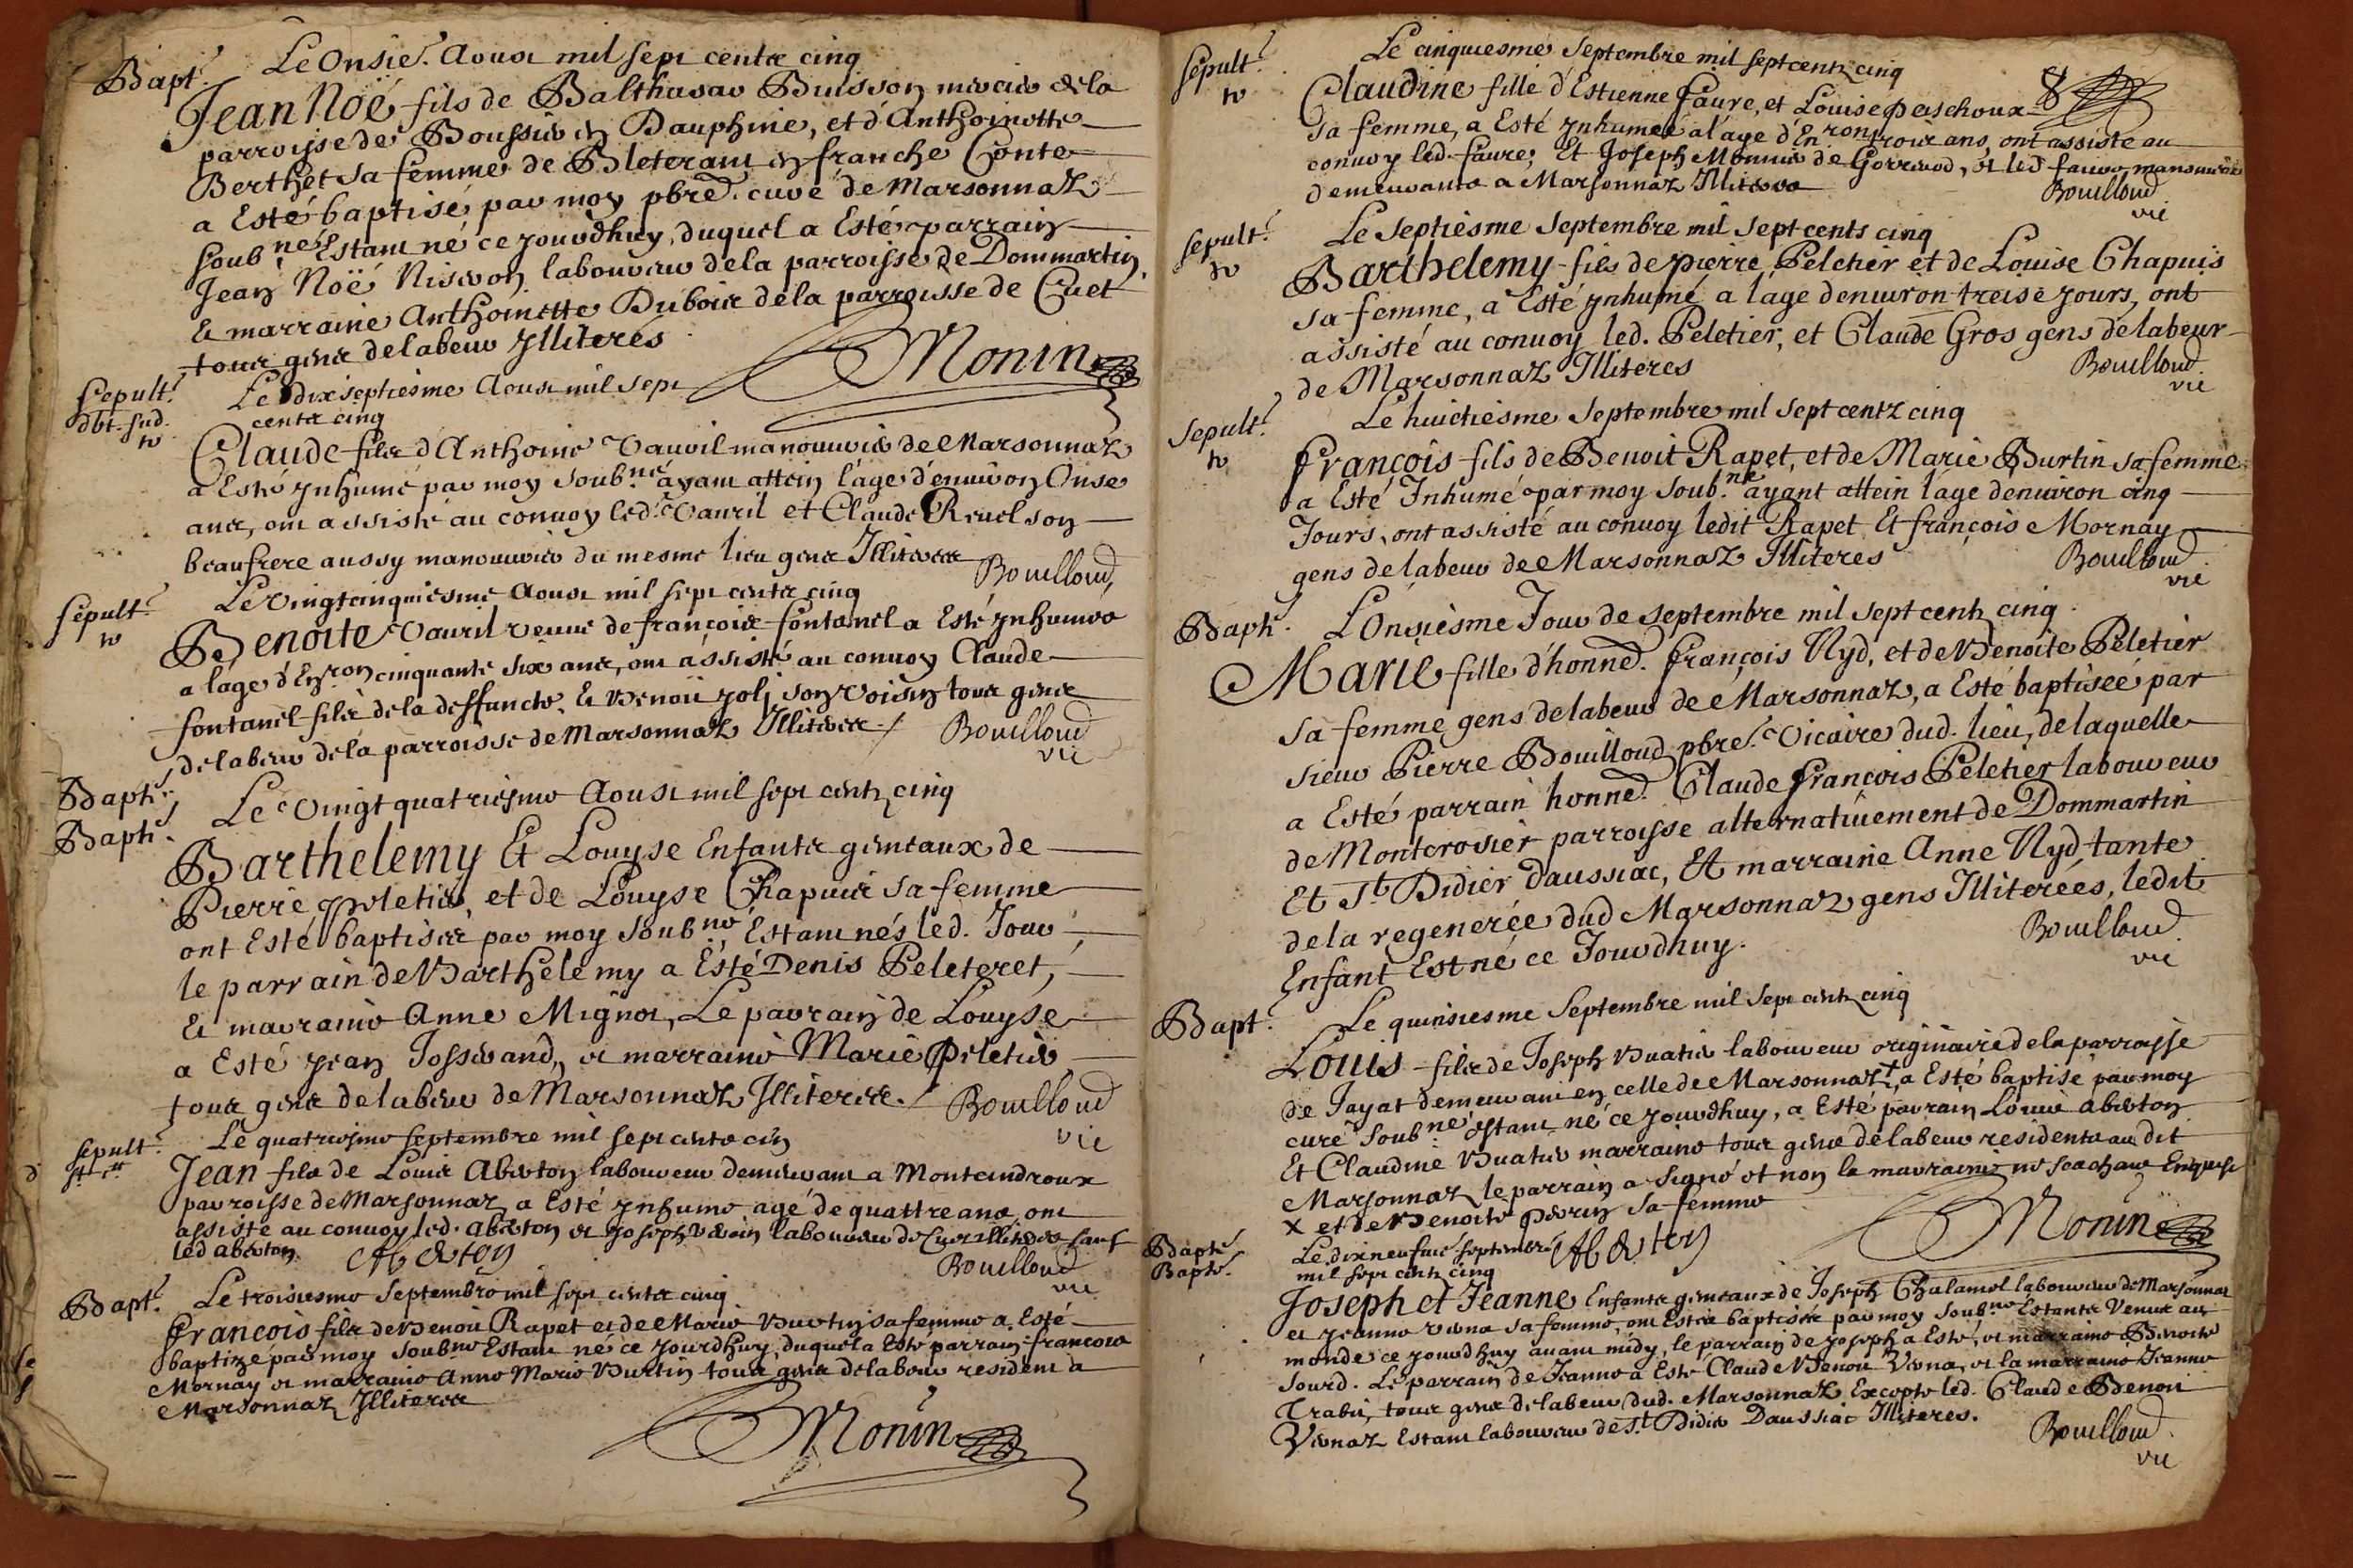 Bapt. Le Onsie. Aoust mil sept cents cinq
Jean Noë fils de Balthasar Buisson mercier de la
parroisse de Boussieu en Dauphiné, et d'Anthoinette
Berthet sa femme de Bleterant en franche Conté
a Esté baptisé par moy pbre. curé de Marsonnaz
soub.né Estant né ce jourdhuy, duquel a Esté parrain
Jean Noë laboureur de la parroisse de Dommartin,
Et marraine Anthoinette Dubois de la parroisse de Cuet
tous gens de labeur Jlliterés
Monin
Sepult. Le dix septiesme Aoust mil sept
cents cinq
Claude fils d'Anthoine Vauril manouvrier de Marsonnaz
a Esté Jnhumé par moy soub.né ayant attein l'âge d'enuiron Onse
ans, ont assisté au conuoy led. Vauril et Claude Reuel son
beaufrere aussy manouurier du mesme lieu gens Jlliteres
Bouilloud,
Sepult. Le Vingtcinquiesme Aoust mil sept cents cinq
Benoite Vauril veuue de françois fontanel a Esté Jnhumée
a lâge d'Enron cinquante six ans, ont assisté au conuoy Claude
fontanel fils de la deffuncte, & Benoit Joly son voisin tous gens
de labeur de la parroisse de Marsonnaz Jlliteres./
Bouilloud
vic
Bapt.
Bapt. Le Vingt quatriesme Aoust mil sept cents cinq
Barthelemy Et Louyse Enfants gemeaux de
Pierre Peletier, et de Louyse Chapuis sa femme
ont Esté baptisés par moy soubné, Estant nés led. Jour,
le parrain de Barthelemy a Esté Denis Peleteret,
Et marraine Anne Mignot, Le parrain de Louyse
a Esté Jean Josserand, et marraine Marie Peletier
tous gens de labeur de Marsonnaz Jlliteres./
Bouilloud
vic
sepult. Le quatriesme septembre mil sept cents cinq
Jean fils de Louis Abeton laboureur demeurant a Monteindroux
parroisse de Marsonnaz a Esté Jnhumé agé de quattre ans, ont
assisté au conuoy led. Abeton et Joseph laboureur de Cuet Jlliteres sauf
led Abeton. Abeton
Bouilloud
vic
Bapt. Le troisiesme Septembre mil sept cents cinq
françois fils de Benoit Rapet et de Marie Burtin sa femme a Esté
baptizé par moy soubné Estant né ce jourdhuy, duquel a Esté parrain francois
Mornay et marraine Anne Marie Burtin tous gens de labeur resident a
Marsonnaz Jlliteres
Monin
Sepult. Le cinquiesme Septembre mil sept cents cinq
Claudine fille d'Estienne Faure, et Louise Perschoux
sa femme, a Esté Jnhumée a l'age d'Enron trois ans, ont assisté au
conuoy led. faure, Et Joseph Monnier de Gorreuod, et led faure manouuriers
demeurants a Marsonnaz Jlliteres
Bouilloud
vic
sepult. Le Septiesme Septembre mil sept cents cinq
Barthelemy fils de pierre Peletier et de Louise Chapuis
sa femme, a Esté Jnhumé a l'age denuiron treise jours, ont
assisté au conuoy led. Peletier, et Claude Gros gens de labeur
de Marsonnaz Jlliteres
Bouilloud
vic
Sepult. Le huictiesme Septembre mil sept centz cinq
françois fils de Benoit Rapet, et de Marie Burtin sa femme
a Esté Jnhumé par moy soub.né ayant attein l'age denuiron cinq
Jours, ont assisté au conuoy ledit Rapet Et françois Mornay
gens de labeur de Marsonnaz Jlliteres
Bouilloud
vic
Bapt. L'Onsiesme Jour de septembre mil sept cents cinq
Marie fille d'honne. françois Nyd, et de Benoite Peletier
sa femme gens de labeur de Marsonnaz, a Esté baptisée par
sieur Pierre Bouilloud pbre. Vicaire dud. lieu, de laquelle
a Esté parrain honne. Claude françois Peletier laboureur
de Montcrosier parroisse alternatiuement de Dommartin
Et St. Didier Daussiac, Et marraine Anne Nyd tante
de la regenerée dud Marsonnaz gens Jlliterées, ledit
Enfant Est né ce Jourdhuy.
Bouilloud
vic
Bapt. Le quinsiesme Septembre mil sept cents cinq
Louis fils de Joseph Buatier laboureur originaire de la parroisse
de Jayat demeurant en celle de Marsonnaz x, a Esté baptisé par moy
curé soubné estant né ce jourdhuy, a Esté parrain Louis Abeton
Et Claudine Buatier marraine tous gens de labeur residents au dit
Marsonnaz le parrain a signé et non la marraine ne scachant Enquise
x et de Benoite Perrin sa femme
Abeton
Monin
Bapt.
Bapt. Le dix neufuie septembre
mil sept cents cinq
Joseph et Jeanne Enfants gemeaux de Joseph Chalamel laboureur de Marsonnaz
et Jeanne Viena sa femme, ont Estés baptisés par moy soubné Estants Venus au
monde ce jourdhuy auant midy, le parrain de Joseph a Esté, et marraine Benoite
Sourd. Le parrain de Jeanne a Esté Claude Benoit Viena, et la marraine Jeanne
Trabu, tous gens de labeur dud. Marsonnaz Excepté led. Claude Benoit
Vienaz Estant laboureur de St. Didier Daussiac Jlliteres.
Bouilloud
vic